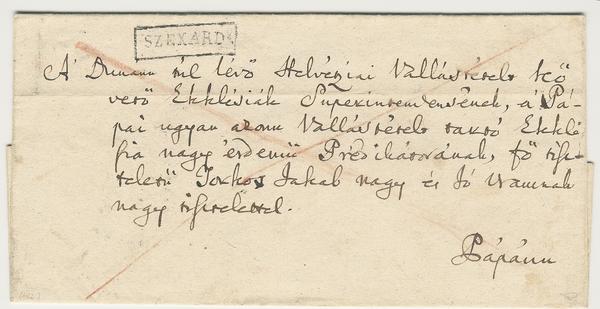 SZEXARD
A' Dunánn túl lévő Helvétziai Vallástételt kö
vető Ekklésiák Superintendensének, a' Pá-
pai ugyan azonn Vallástételt tartó Ekklé
sia nagy érdemű Prédikátorának, fő tisz-
teletű Torkos Jakab nagy jó Uramnak
nagy tisztelettel.
Pápánn